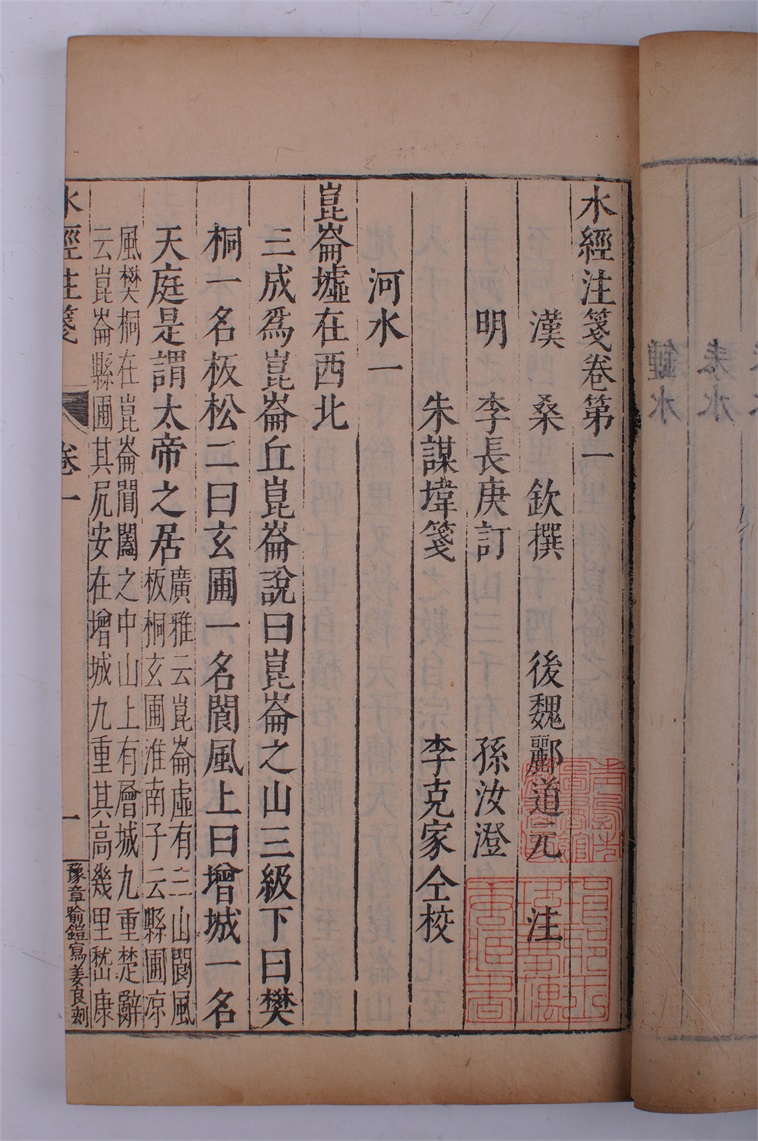 水經注箋卷第一
漢 桑 欽撰 後魏酈道元 注
明 李長庚訂 孫汝澄
朱謀㙔箋 李克家仝校
河水一
崑崙墟在西北
三成爲崑崙丘崑崙說曰崑崙之山三級下曰樊
桐一名板松二曰玄圃一名閬風上曰增城一名
天庭是謂太帝之居
廣雅云崑崙虛有三山閬風
板桐玄圃淮南子云縣圃涼
風樊桐在崑崙閶闔之中山上有層城九重楚辭
云崑崙縣圃其凥安在增城九重其高幾里嵇康
水經注箋 卷一 一
豫章喻鎧寫姜良刻
耒水
鍾水